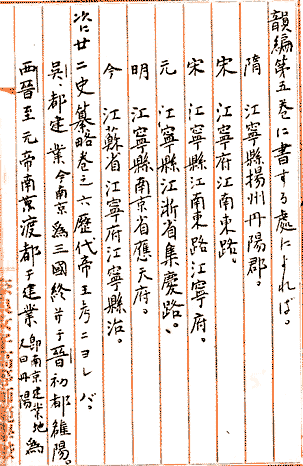 韻編第五巻に書する處によれば。
隋　江寧縣揚州丹陽郡。
宋　江寧府江南東路。
宋　江寧縣江南東路江寧府。
元　江寧縣江浙省集慶路。
明　江寧縣南京省應天府。
今　江蘇省江寧府江寧縣治。
次に廿二史纂略巻之六歴代帝王考ニヨレバ。
吳、都建業今南京為三國終并于晉初都雒陽。
西晉至元帝南渡都于建業即南京建業地又曰丹陽為